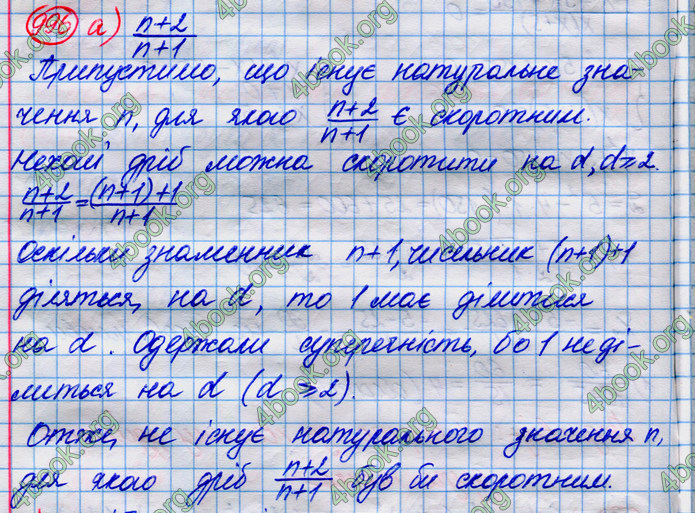 996 а) (n+2)/(n+1)
Припустимо, що існує натуральне зна-
чення n, для якого (n+2)/(n+1) є скоротним.
Нехай дріб можна скоротити на d, d⩾2.
(n+2)/(n+1) = ((n+1)+1)/(n+1)
Оскільки знаменник n+1, чисельник (n+1)+1
діляться, на d, то 1 має ділитися
на d. Одержали суперечність, бо 1 не ді-
литься на d (d⩾2).
Отже, не існує натурального значення n,
для якого дріб (n+2)/(n+1) був би скоротним.
4book.org